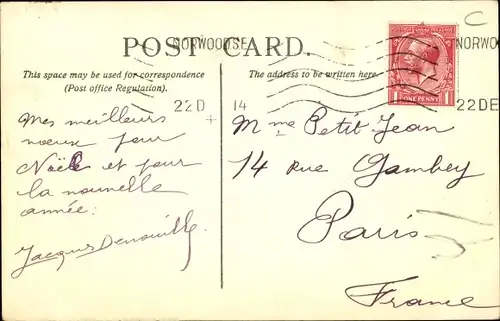 POST CARD.
NORWOOD S E
NORWOO
This space may be used for correspondence
(Post office Regulation).
The address to be written here.
POSTAGE REVENUE
1 ONE PENNY 1
22 D 14
22 DE
C
Mes meilleurs
voeux pour
Noël et pour
la nouvelle
année.
Jacques
Mme Petit Jean
14 Rue Gambey
Paris
France